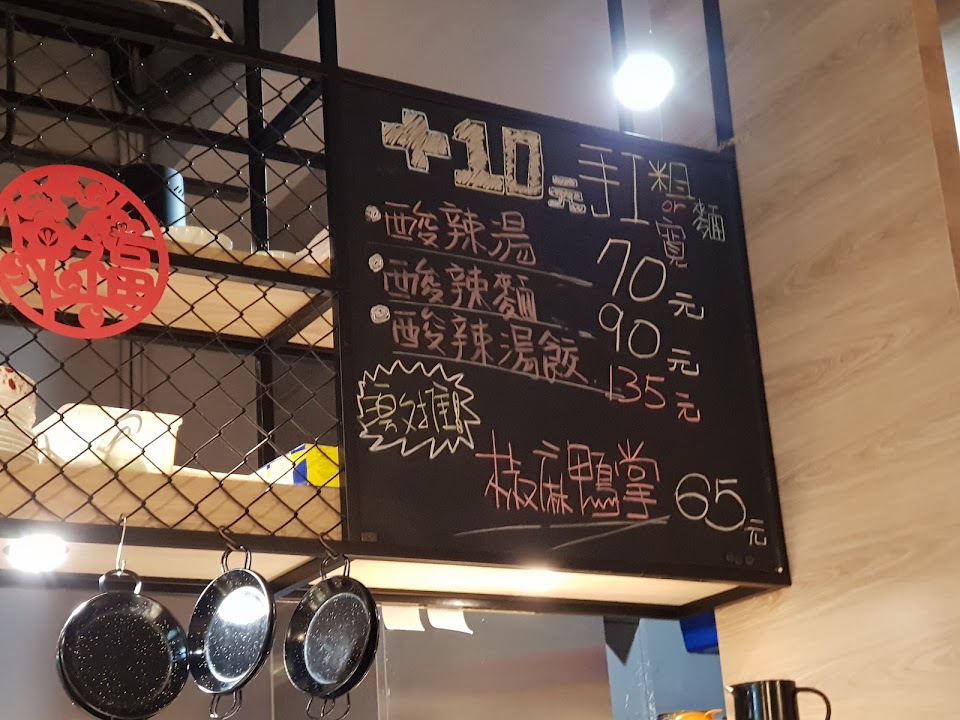 +10元手工粗or寬麵
酸辣湯 70元
酸辣麵 90元
酸辣湯餃 135元
激推!
椒麻鴨掌 65元
福